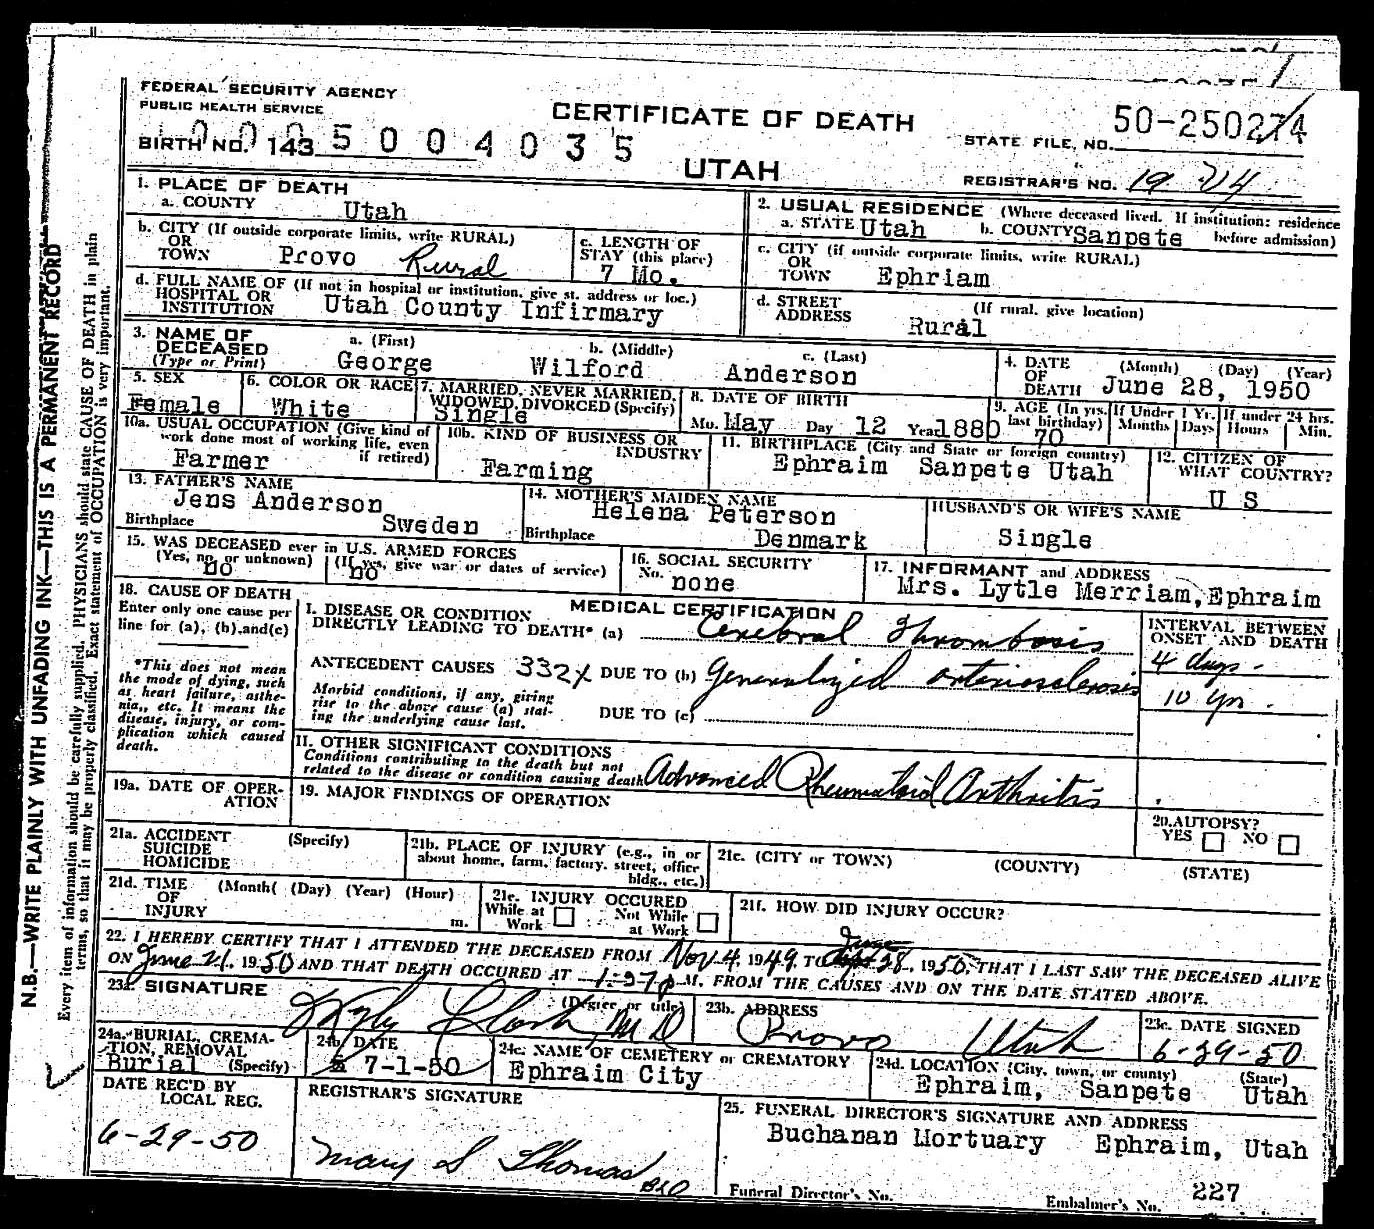 FEDERAL SECURITY AGENCY
PUBLIC HEALTH SERVICE
CERTIFICATE OF DEATH
UTAH
BIRTH NO. 143 5004035
STATE FILE NO. 50-250274
REGISTRAR'S NO. 19
1. PLACE OF DEATH
a. COUNTY Utah
b. CITY (If outside corporate limits, write RURAL)
OR
TOWN Provo Rural
c. LENGTH OF
STAY (this place)
7 Mo.
d. FULL NAME OF (If not in hospital or institution, give st. address or loc.)
HOSPITAL OR
INSTITUTION Utah County Infirmary
2. USUAL RESIDENCE (Where deceased lived. If institution: residence
a. STATE Utah b. COUNTY Sanpete before admission)
c. CITY (if outside corporate limits, write RURAL)
OR
TOWN Ephriam
d. STREET (If rural, give location)
ADDRESS Rural
3. NAME OF
DECEASED
(Type or Print)
a. (First) b. (Middle) c. (Last)
George Wilford Anderson
4. DATE (Month) (Day) (Year)
OF
DEATH June 28, 1950
5. SEX
Female
6. COLOR OR RACE
White
7. MARRIED, NEVER MARRIED,
WIDOWED, DIVORCED (Specify)
Single
8. DATE OF BIRTH
Mo. May Day 12 Year 1880
9. AGE (In yrs.
last birthday)
70
If Under 1 Yr.
Months Days
If under 24 hrs.
Hours Min.
10a. USUAL OCCUPATION (Give kind of
work done most of working life, even
if retired)
Farmer
10b. KIND OF BUSINESS OR
INDUSTRY
Farming
11. BIRTHPLACE (City and State or foreign country)
Ephraim Sanpete Utah
12. CITIZEN OF
WHAT COUNTRY?
U S
13. FATHER'S NAME
Jens Anderson
Birthplace Sweden
14. MOTHER'S MAIDEN NAME
Helena Peterson
Birthplace Denmark
HUSBAND'S OR WIFE'S NAME
Single
15. WAS DECEASED ever in U.S. ARMED FORCES
(Yes, no, or unknown) (If yes, give war or dates of service)
no no
16. SOCIAL SECURITY
No. none
17. INFORMANT and ADDRESS
Mrs. Lytle Merriam, Ephraim
18. CAUSE OF DEATH
Enter only one cause per
line for (a), (b), and (c)
*This does not mean
the mode of dying, such
as heart failure, asthe-
nia,, etc. It means the
disease, injury, or com-
plication which caused
death.
MEDICAL CERTIFICATION
I. DISEASE OR CONDITION
DIRECTLY LEADING TO DEATH* (a) Cerebral Thrombosis
ANTECEDENT CAUSES 332X DUE TO (b) Generalized arteriosclerosis
Morbid conditions, if any, giving
rise to the above cause (a) stat-
ing the underlying cause last.
DUE TO (c)
INTERVAL BETWEEN
ONSET AND DEATH
4 days.
10 yrs.
II. OTHER SIGNIFICANT CONDITIONS
Conditions contributing to the death but not
related to the disease or condition causing death Advanced Rheumatoid Arthritis
19a. DATE OF OPER-
ATION
19. MAJOR FINDINGS OF OPERATION
20. AUTOPSY?
YES NO
21a. ACCIDENT (Specify)
SUICIDE
HOMICIDE
21b. PLACE OF INJURY (e.g., in or
about home, farm, factory, street, office
bldg., etc.)
21c. (CITY or TOWN) (COUNTY) (STATE)
21d. TIME (Month( (Day) (Year) (Hour)
OF
INJURY m.
21e. INJURY OCCURED
While at Work Not While at Work
21f. HOW DID INJURY OCCUR?
22. I HEREBY CERTIFY THAT I ATTENDED THE DECEASED FROM Nov 4, 1949 TO June 28, 1950, THAT I LAST SAW THE DECEASED ALIVE
ON June 21, 1950 AND THAT DEATH OCCURED AT 1:37 p M. FROM THE CAUSES AND ON THE DATE STATED ABOVE.
23a. SIGNATURE (Degree or title)
Clark MD
23b. ADDRESS
Provo Utah
23c. DATE SIGNED
6-29-50
24a. BURIAL, CREMA-
TION, REMOVAL
Burial (Specify)
24b. DATE
7-1-50
24c. NAME OF CEMETERY or CREMATORY
Ephraim City
24d. LOCATION (City, town, or county) (State)
Ephraim, Sanpete Utah
DATE REC'D BY
LOCAL REG.
6-29-50
REGISTRAR'S SIGNATURE
Mary S Thomas
25. FUNERAL DIRECTOR'S SIGNATURE AND ADDRESS
Buchanan Mortuary Ephraim, Utah
Funeral Director's No.
Embalmer's No. 227
N.B.—WRITE PLAINLY WITH UNFADING INK—THIS IS A PERMANENT RECORD
Every item of information should be carefully supplied. PHYSICIANS should state CAUSE OF DEATH in plain
terms, so that it may be properly classified. Exact statement of OCCUPATION is very important.